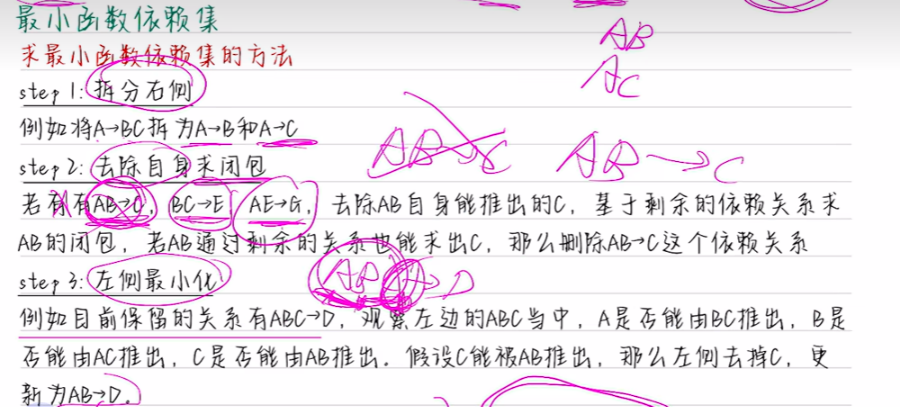 最小函数依赖集
求最小函数依赖集的方法
AB
AC
step 1: 拆分右侧
例如将A→BC拆为A→B和A→C
AB→C AB→C
step 2: 去除自身求闭包
若有有AB→C, BC→E, AE→G, 去除AB自身能推出的C, 基于剩余的依赖关系求
AB的闭包, 若AB通过剩余的关系也能求出C, 那么删除AB→C这个依赖关系
step 3: 左侧最小化
→D
例如目前保留的关系有ABC→D, 观察左边的ABC当中, A是否能由BC推出, B是
否能由AC推出, C是否能由AB推出. 假设C能被AB推出, 那么左侧去掉C, 更
新为AB→D.